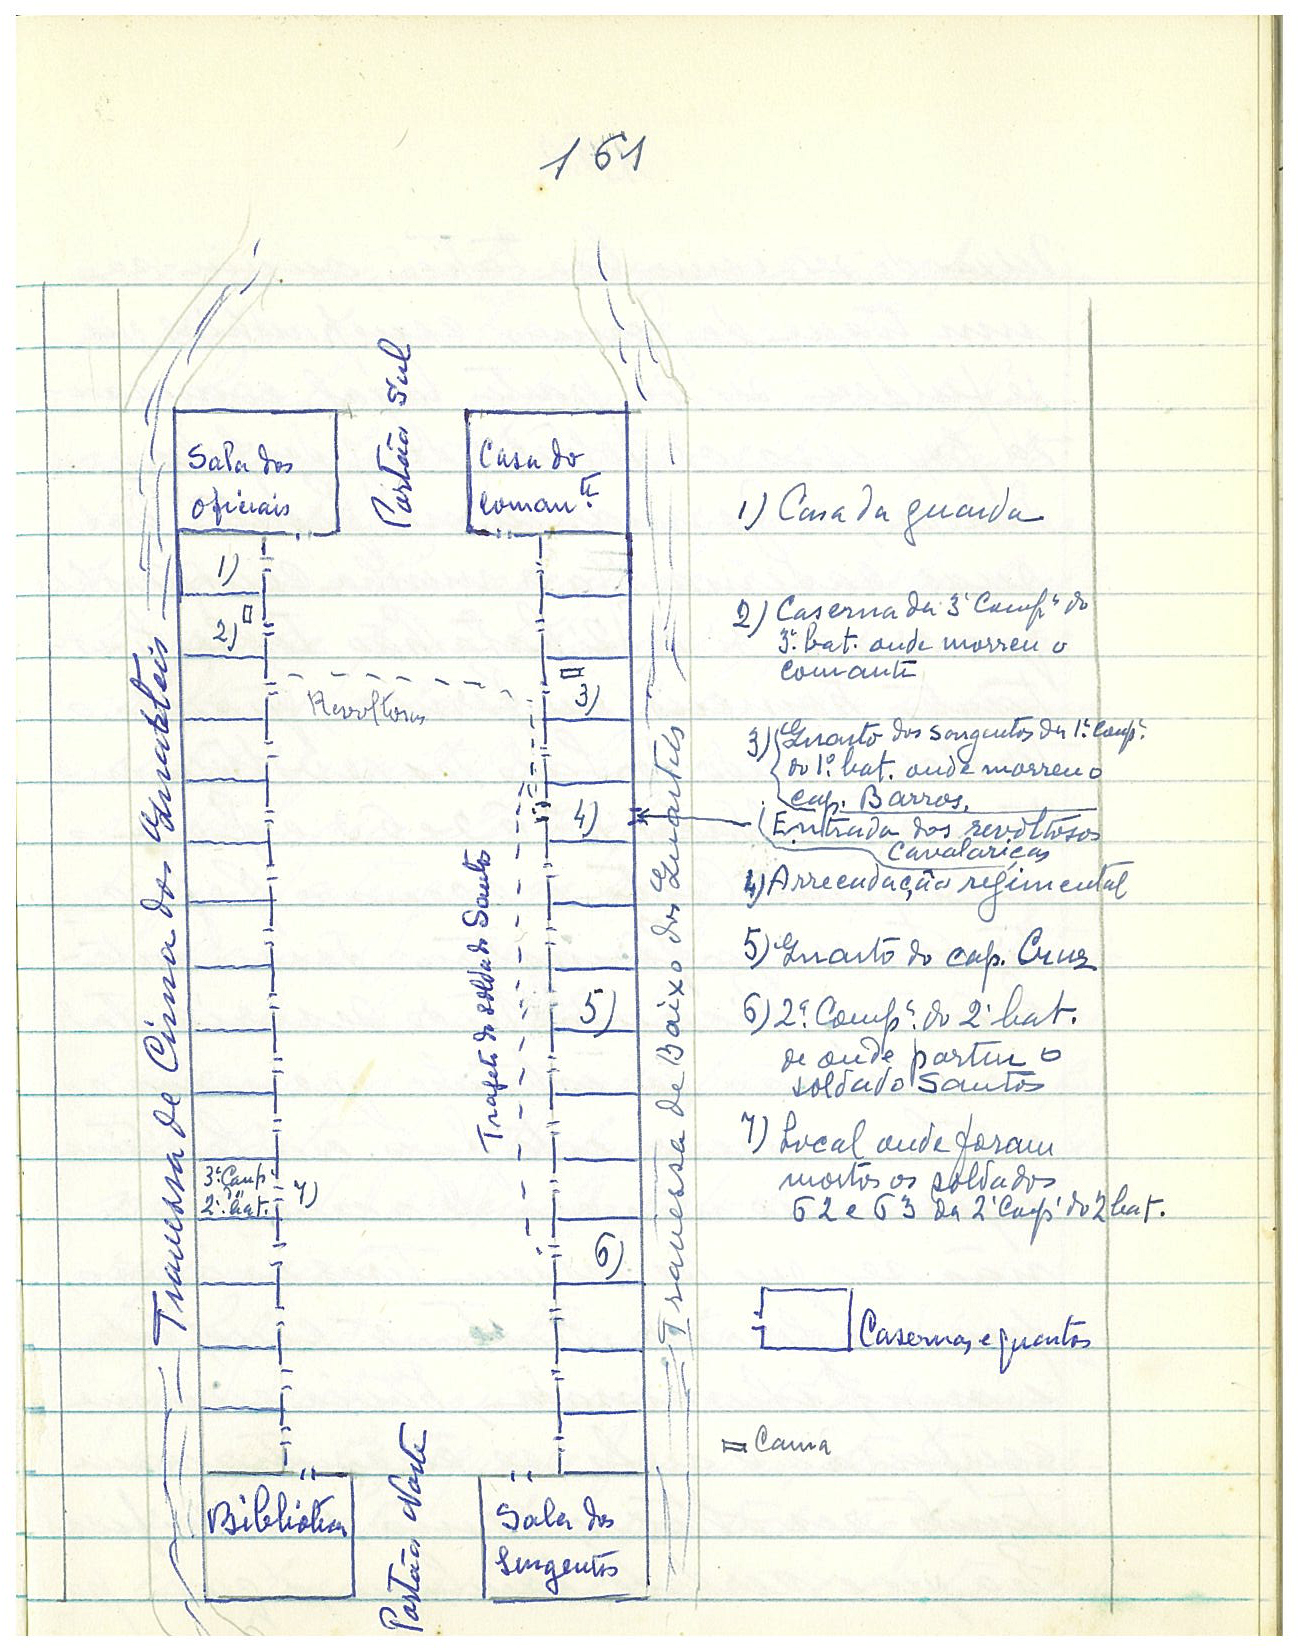 161
Portão Sul
Sala dos
oficiais
Casa do
Coman.te
1)
2)
3)
Revoltosos
4)
Trajeto do soldado Santos
5)
3ª Comp.
2º bat.
7)
6)
Travessa de Cima dos Quarteis
Travessa de Baixo dos Quarteis
Biblioteca
Portão Norte
Sala dos
Sargentos
1) Casa da guarda
2) Caserna da 3ª Comp.ª do
3º bat. onde morreu o
comante
3) Quarto dos sargentos da 1ª Comp.ª
do 1º bat. onde morreu o
cap. Barros.
Entrada dos revoltosos
Cavalariças
4) Arrecadação regimental
5) Quarto do cap. Cruz
6) 2ª Comp.ª do 2º bat.
de onde partiu o
soldado Santos
7) Local onde foram
mortos os soldados
62 e 63 da 2ª Comp.ª do 2º bat.
Casernas e quartos
Cama